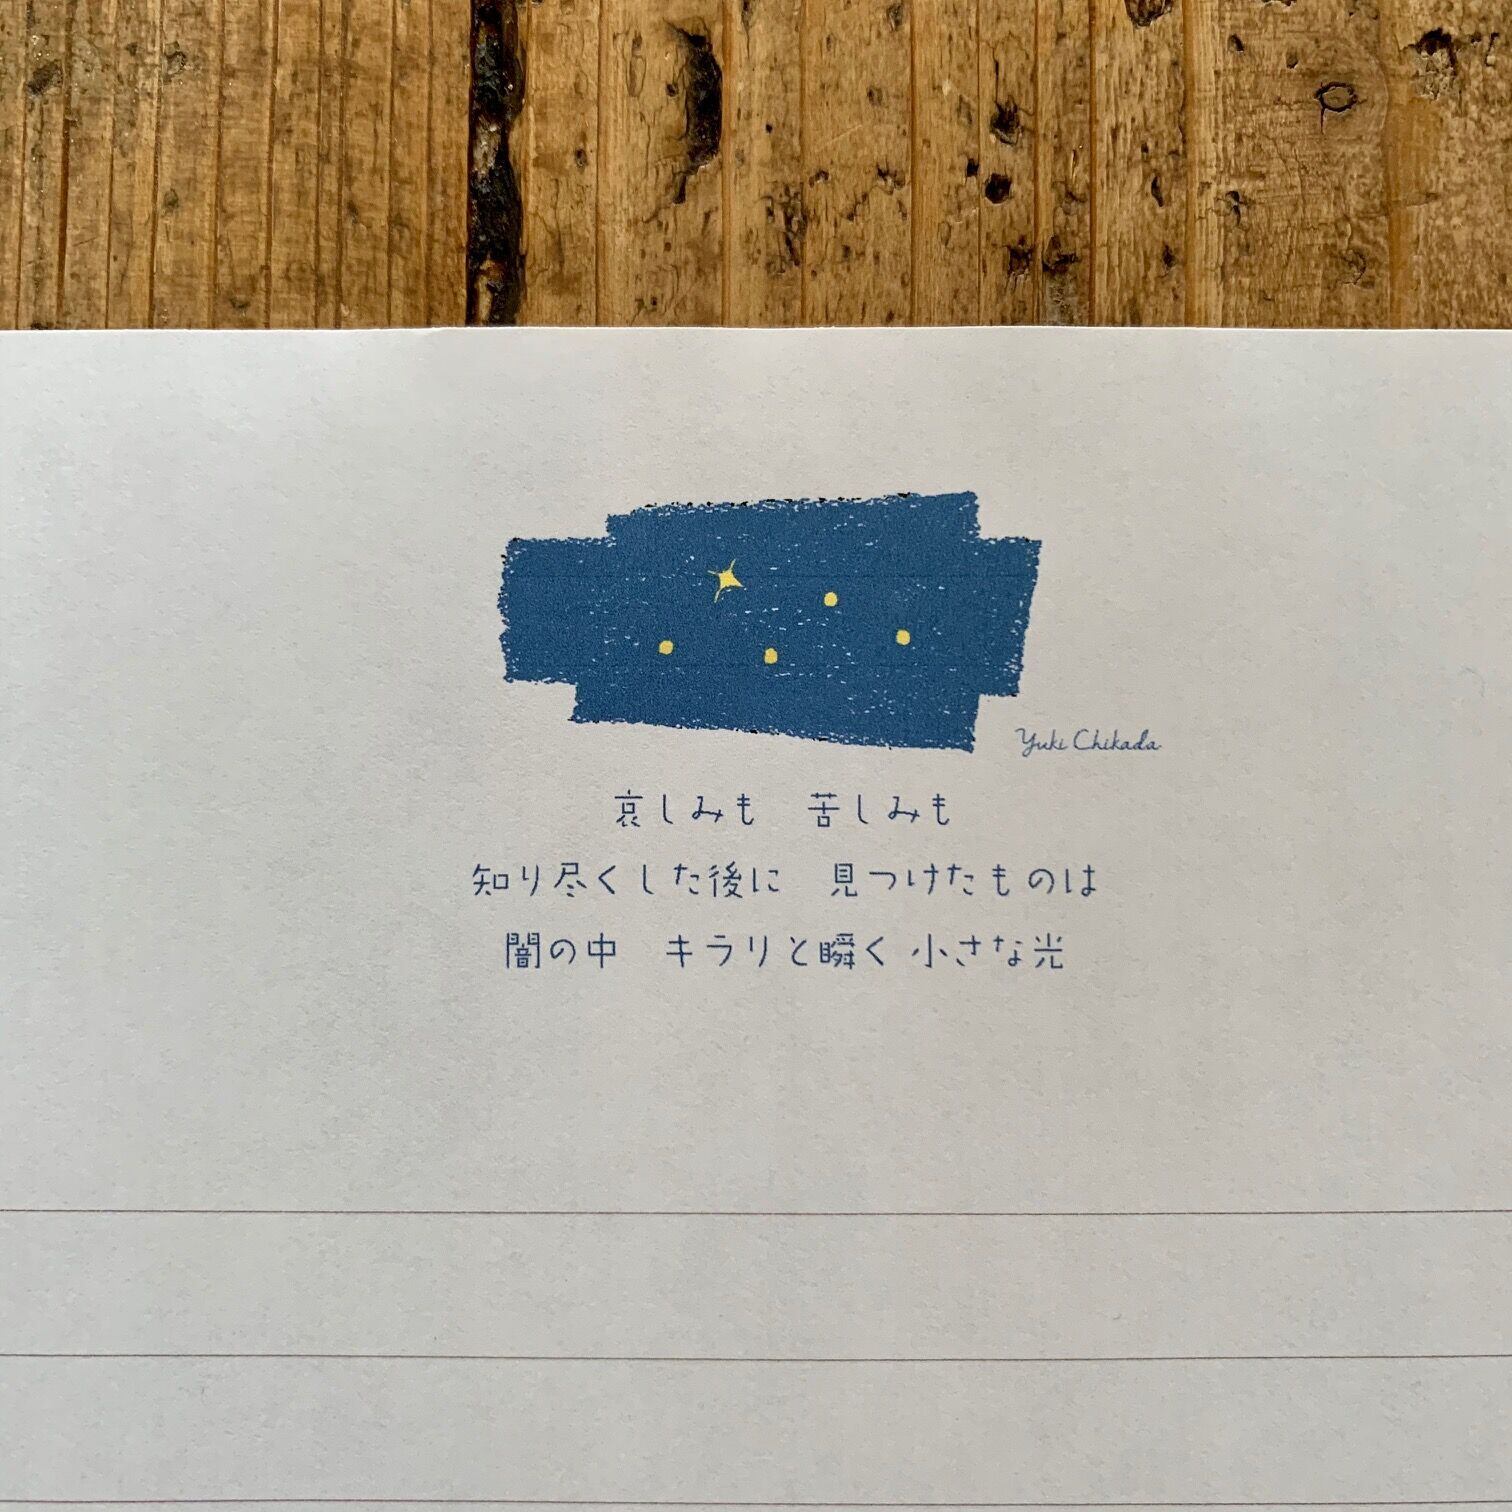 Yuki Chikada
哀しみも　苦しみも
知り尽くした後に　見つけたものは
闇の中　キラリと瞬く 小さな光